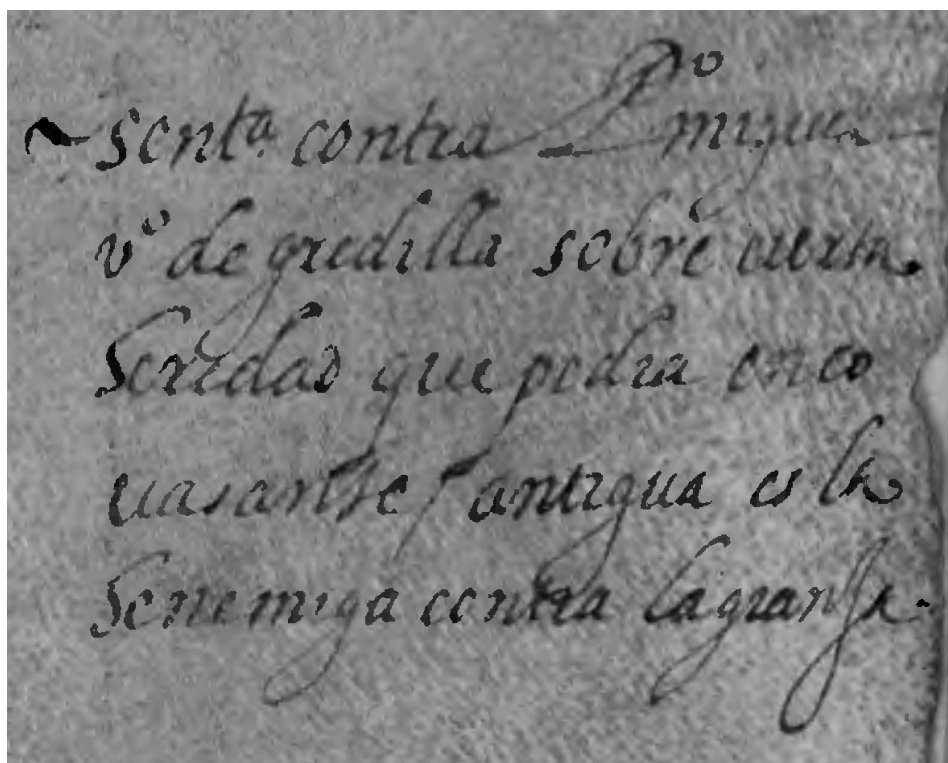 sentª contra Pº migel
vº de gredilla sobre cierta
heredad que pedia en co
uasante / antigua es la
henemiga contra la granja.